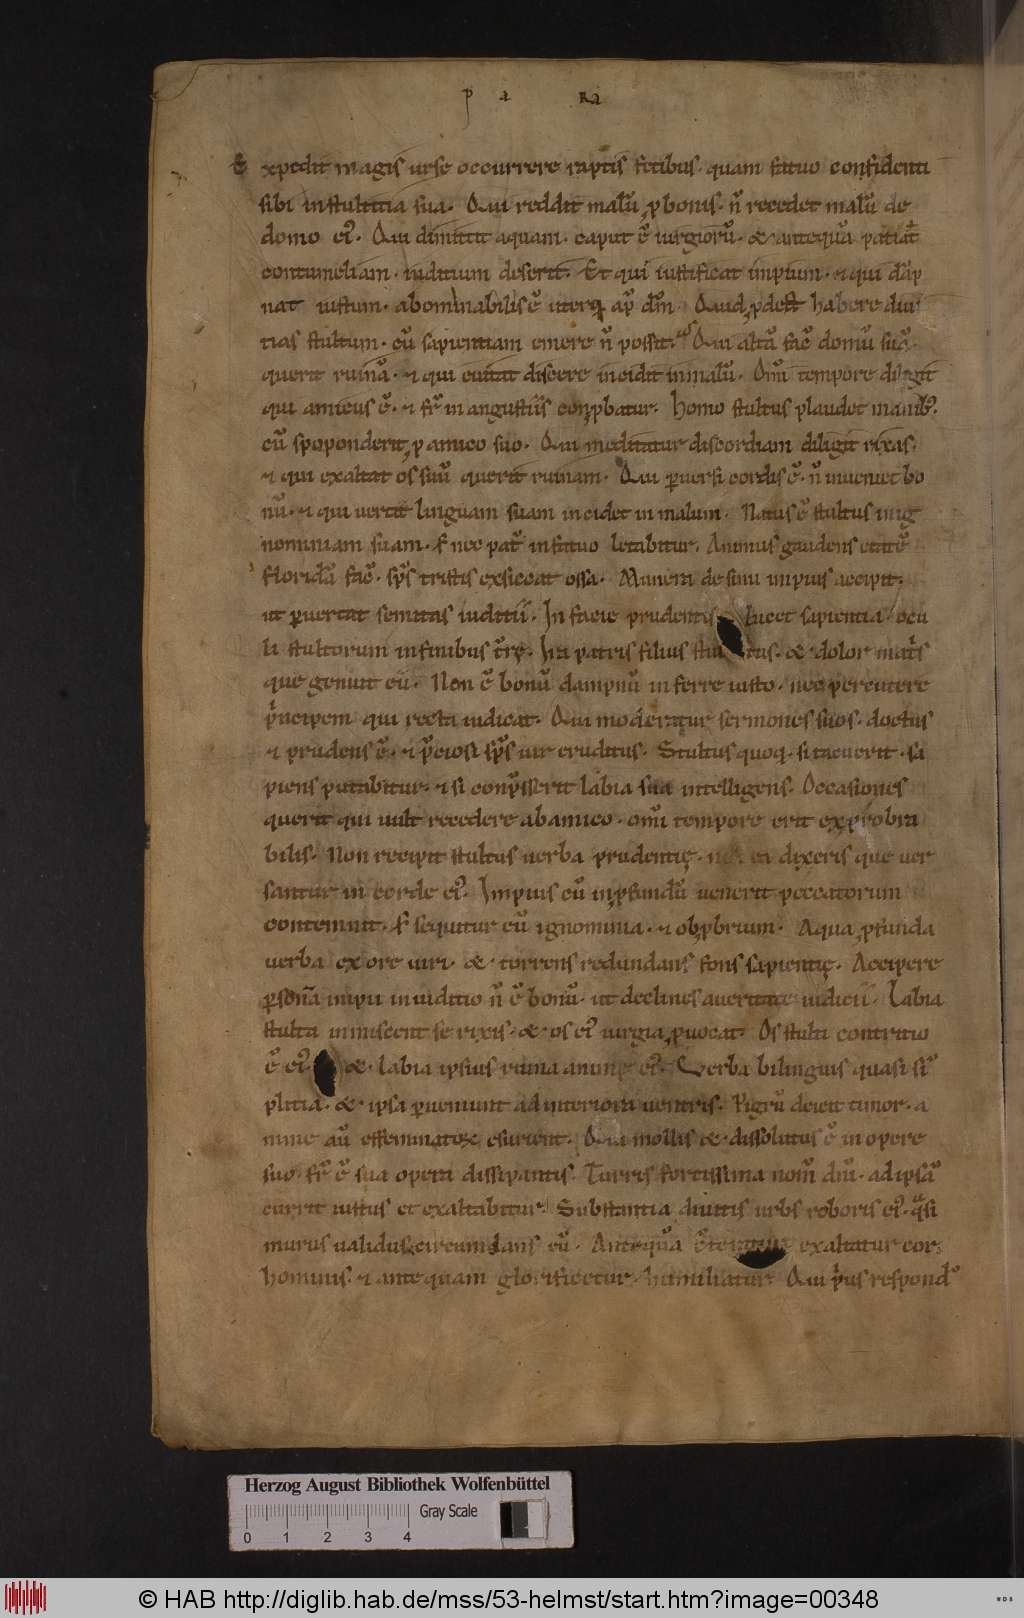 p a Ra
Expedit magis urse occurrere raptis fetibus. quam fatuo confidenti
sibi in stultitia sua. Qui reddit malū ꝓ bonis. n̄ recedet malū de
domo eiꝰ. Qui dimittit aquam. caput ē iurgiorū. & antequā patiat᷑
contumeliam. iuditium deserit. Et qui iustificat impium. ⁊ qui dāp
nat iustum. abominabilis ē uterq; ap̄ dm̄. Quid ꝓdest habere diui
tias stultum. cū sapientiam emere n̄ possit. Qui altā fac̄ domū suā.
querit ruinā. ⁊ qui euitat discere incidit in malū. Om̄i tempore diligit
qui amicus ē. ⁊ fr̄ in angustiis conꝓbatur. Homo stultus plaudet manibꝰ.
cū spoponderit ꝓ amico suo. Qui meditatur discordiam diligit rixas.
⁊ qui exaltat os suū querit ruinam. Qui ꝑuersi cordis ē. n̄ inueniet bo
nū. ⁊ qui vertit linguam suam incidet in malum. Natus ē stultus in ig
nominiam suam. s; nec pat̄ in fatuo letabitur. Animus gaudens etatē
floridā fac̄. sp̄s tristis exsiccat ossa. Munera de sinu impius accipit.
ut ꝑuertat semitas iuditii. In facie prudentis lucet sapientia. ocu
li stultorum in finibus tr̄ę. Ira patris filius stultus. & dolor mat̄s
que genuit eū. Non ē bonū dampnū inferre iusto. nec percutere
p̄ncipem qui recta iudicat. Qui moderatur sermones suos. doctus
⁊ prudens ē. ⁊ p̄ciosi sp̄s uir eruditus. Stultus quoq; si tacuerit. sa
piens putabitur. ⁊ si conp̄sserit labia sua intelligens. Occasiones
querit qui uult recedere ab amico. om̄i tempore erit exprobra
bilis. Non recipit stultus uerba prudentię. nisi ea dixeris que uer
santur in corde eiꝰ. Impius cū in ꝓfundū uenerit peccatorum
contemnit. s; sequitur eū ignominia. ⁊ obꝓbrium. Aqua ꝓfunda
uerba ex ore uiri. & torrens redundans fons sapientię. Accipere
ꝑsonā impii in iuditio n̄ ē bonū. ut declines a ueritate iudicii. Labia
stulta inmiscent se rixis. & os eiꝰ iurgia ꝓuocat. Os stulti contritio
ē eiꝰ. & labia ipsius ruina animę eiꝰ. Verba bilinguis quasi sī
plitia. & ipsa ꝑueniunt ad interiora uentris. Pigrū deicit timor. a
nime aū effeminatoꝝ esurient. Qui mollis & dissolutus ē in opere
suo. fr̄ ē sua opera dissipantis. Turris fortissima nom̄ dn̄i. ad ipsā
currit iustus et exaltabitur. Substantia diuitis urbs roboris eiꝰ. q̄si
murus ualidus circumdans eū. Antequā c̄teratur exaltatur cor
hominis. ⁊ antequam glorificetur. humiliatur. Qui p̄us respondꝰ
Herzog August Bibliothek Wolfenbüttel
Gray Scale
0 1 2 3 4
© HAB http://diglib.hab.de/mss/53-helmst/start.htm?image=00348